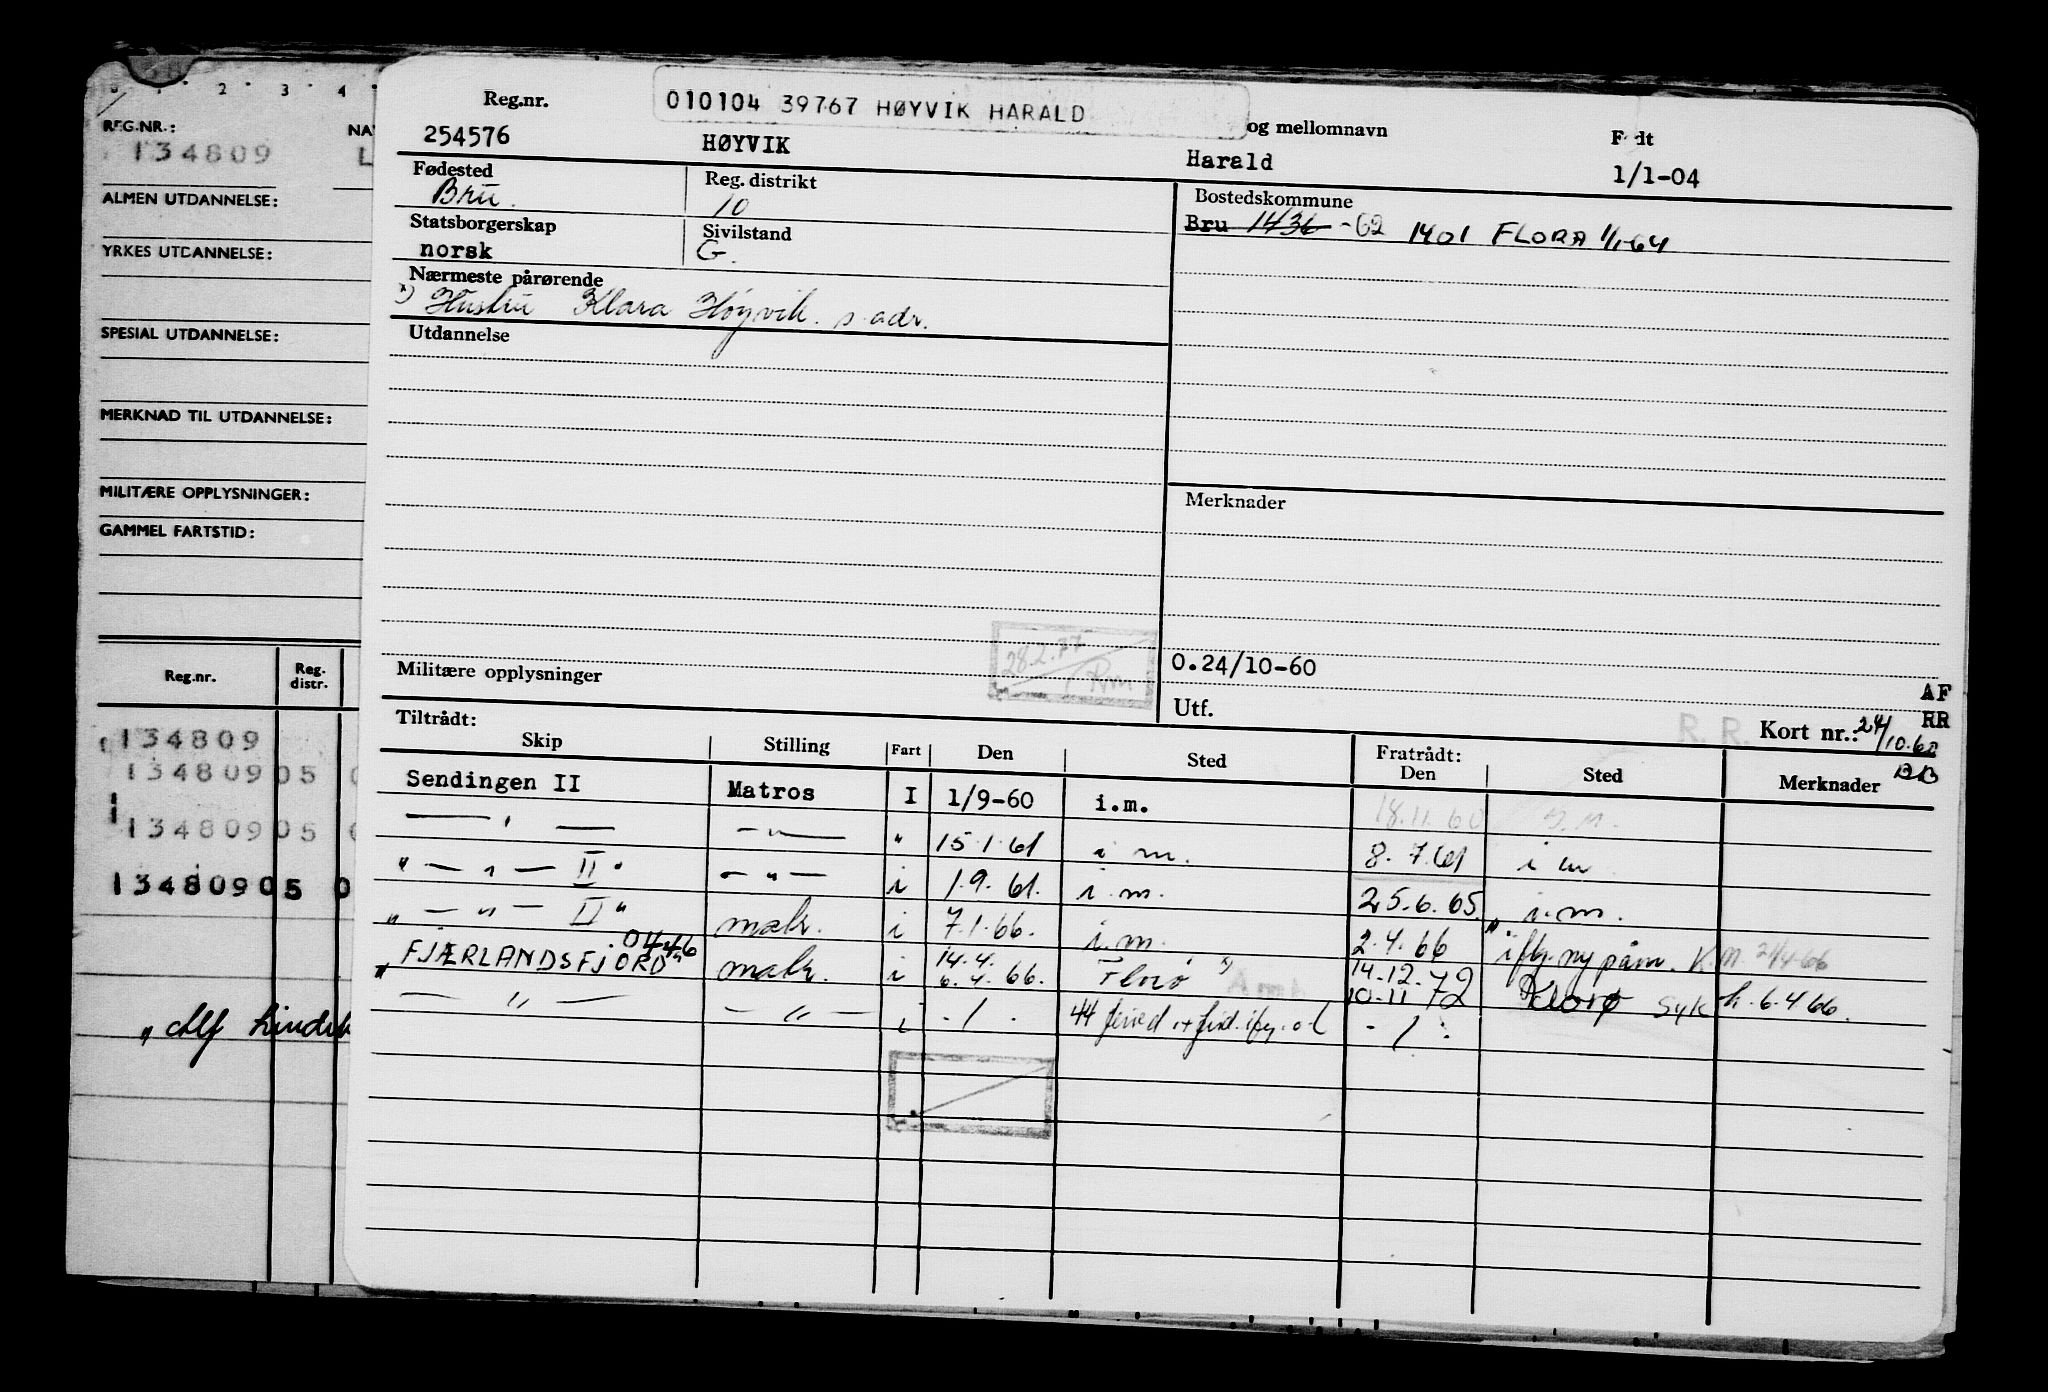 010104 39767 HØYVIK HARALD
Reg.nr. og mellomnavn Født
254576 HØYVIK Harald 1/1-04
Fødested Reg. distrikt Bostedskommune
Bru. 10 Bru 1436 -62 1401 FLORA 1/1-64
Statsborgerskap Sivilstand
norsk G.
Nærmeste pårørende
x) Hustru Klara Høyvik. s. adr.
Utdannelse
Merknader
28.2.77
Militære opplysninger 0.24/10-60
Utf. AF
RR
R. R. Kort nr.: 24/10.60
BB
Tiltrådt: Fratrådt:
Skip Stilling Fart Den Sted Den Sted Merknader
Sendingen II Matros I 1/9-60 i.m. 18.11.60
— " — — " — " 15.1.61 i m. 8.7.61 i m
" — " — II " — " — i 1.9.61. i.m. 25.6.65 " i.m.
" — " — II " matr. i 7.1.66. i.m. 2.4.66 " i flg. ny påm. K.M. 21/4-66
0446
" FJÆRLANDSFJORD " matr. i 14.4. 6.4.66. Florø x) 14.12.72 10.11 72 Florø syk h. 6.4.66.
— " — — " — i - / - 44 - / -
2 3 4
REG.NR.: NA
134809 L
ALMEN UTDANNELSE:
YRKES UTDANNELSE:
SPESIAL UTDANNELSE:
MERKNAD TIL UTDANNELSE:
MILITÆRE OPPLYSNINGER:
GAMMEL FARTSTID:
Reg.nr. Reg. distr.
134809
134809 05 0
134809 05 0
134809 05 0
" Alf